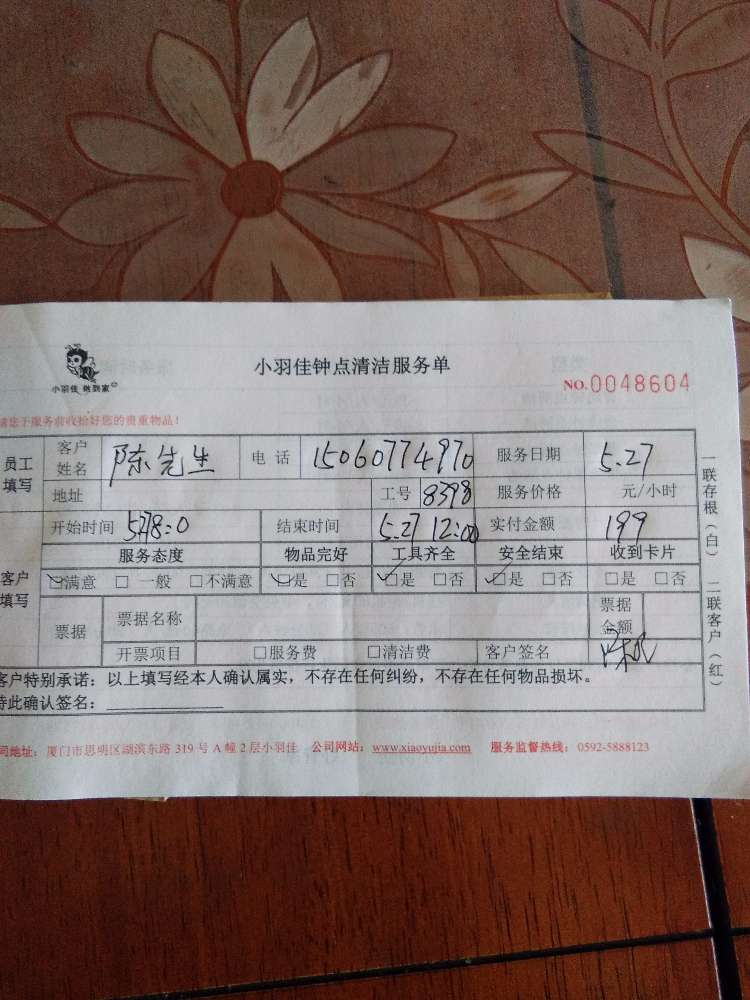 小羽佳钟点清洁服务单
小羽佳 做到家
NO.0048604
请您于服务前收拾好您的贵重物品！
员工填写 客户姓名 陈先生 电话 15060774970 服务日期 5.27
地址 工号 8398 服务价格 元/小时
开始时间 5.278:0 结束时间 5.27 12:00 实付金额 199
客户填写 服务态度 物品完好 工具齐全 安全结束 收到卡片
☑满意 □一般 □不满意 ☑是 □否 ☑是 □否 ☑是 □否 □是 □否
票据 票据名称 票据金额
开票项目 □服务费 □清洁费 客户签名
客户特别承诺：以上填写经本人确认属实，不存在任何纠纷，不存在任何物品损坏。
特此确认签名：
一联存根（白） 二联客户（红）
司地址：厦门市思明区湖滨东路319号A幢2层小羽佳 公司网站：www.xiaoyujia.com 服务监督热线：0592-5888123